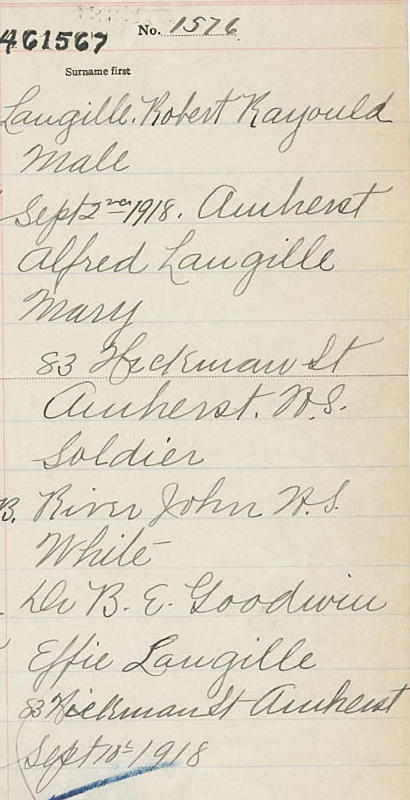 461567
No. 1576
Surname first
Langille. Robert Rayould
Male
Sept 2nd 1918. Amherst
Alfred Langille
Mary
83 Hickman St
Amherst. N.S.
Soldier
B. River John N.S.
White
Dr B. E. Goodwin
Effie Langille
83 Hickman St Amherst
Sept 10th 1918